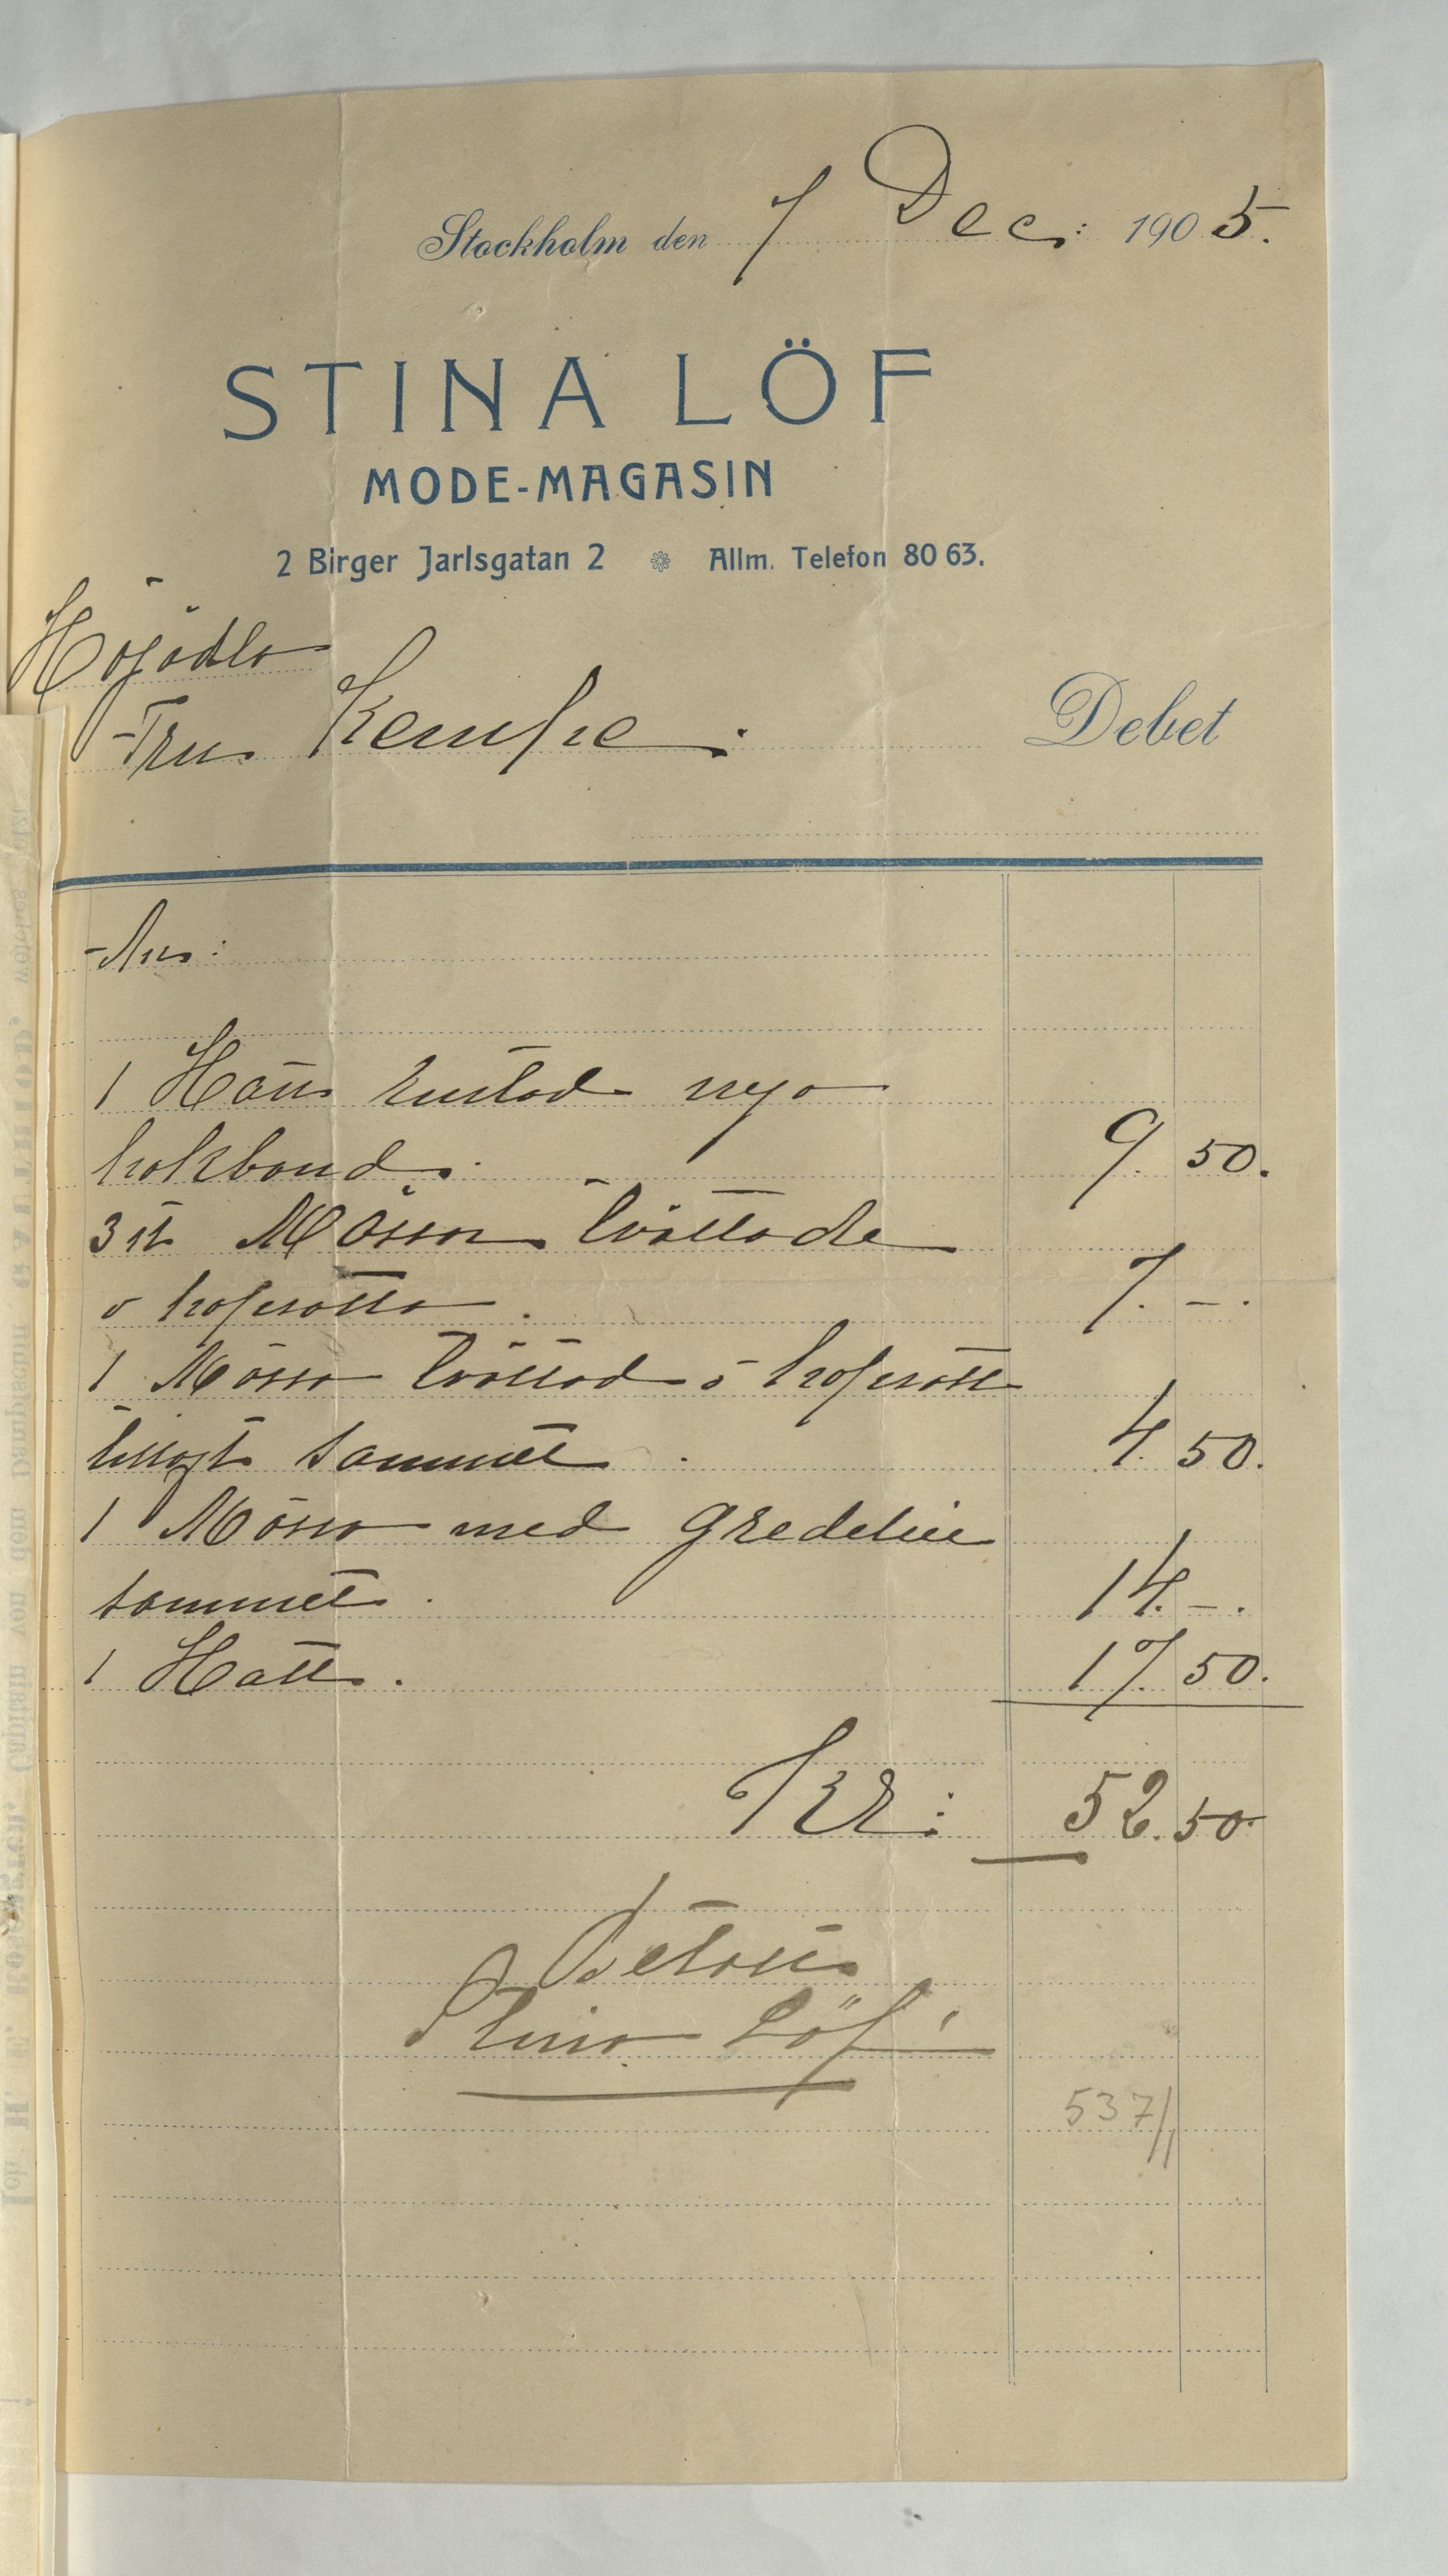 Stockholm den 7 Dec: 1905.
STINA LÖF
MODE-MAGASIN
2 Birger Jarlsgatan 2 Allm. Telefon 80 63.
Högädla
Fru Kempe. Debet
1 Hatt ändrad nya
hakband. 9. 50.
3 st Mössor tvättade
o hopsatta. 7. -.
1 Mössa tvättad o hopsatt
tillagt sammet. 4. 50.
1 Mössa med gredelin
sammet. 14. -.
1 Hatt. 17. 50.
Kr: 52. 50.
Betalt
Stina Löf
537/1